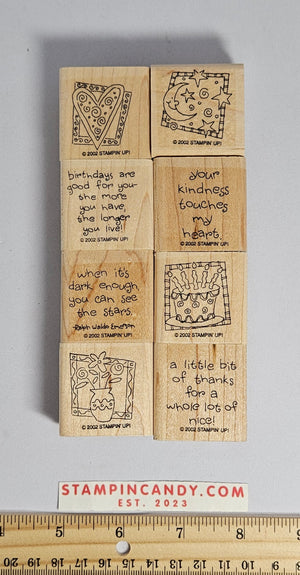 © 2002 STAMPIN' UP!
© 2002 STAMPIN' UP!
birthdays are
good for you-
the more
you have,
the longer
you live!!
© 2002 STAMPIN' UP!
your
kindness
touches
my
heart.
© 2002 STAMPIN' UP!
when it's
dark enough,
you can see
the stars.
-Ralph Waldo Emerson
© 2002 STAMPIN' UP!
© 2002 STAMPIN' UP!
© 2002 STAMPIN' UP!
a little bit
of thanks
for a
whole lot of
nice!
© 2002 STAMPIN' UP!
STAMPINCANDY.COM
EST. 2023
5 6 7 8 9
20 19 18 17 16 15 14 13 12 11 10